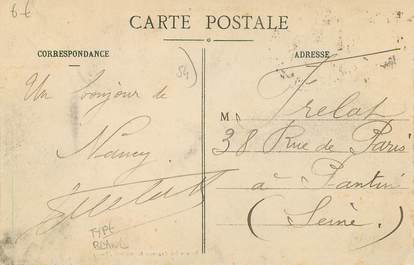 6€
CARTE POSTALE
CORRESPONDANCE
ADRESSE
54
Un bonjour de
Nancy
TYPE
BLANC
M Trelat
38 Rue de Paris
à Pantin
(Seine)